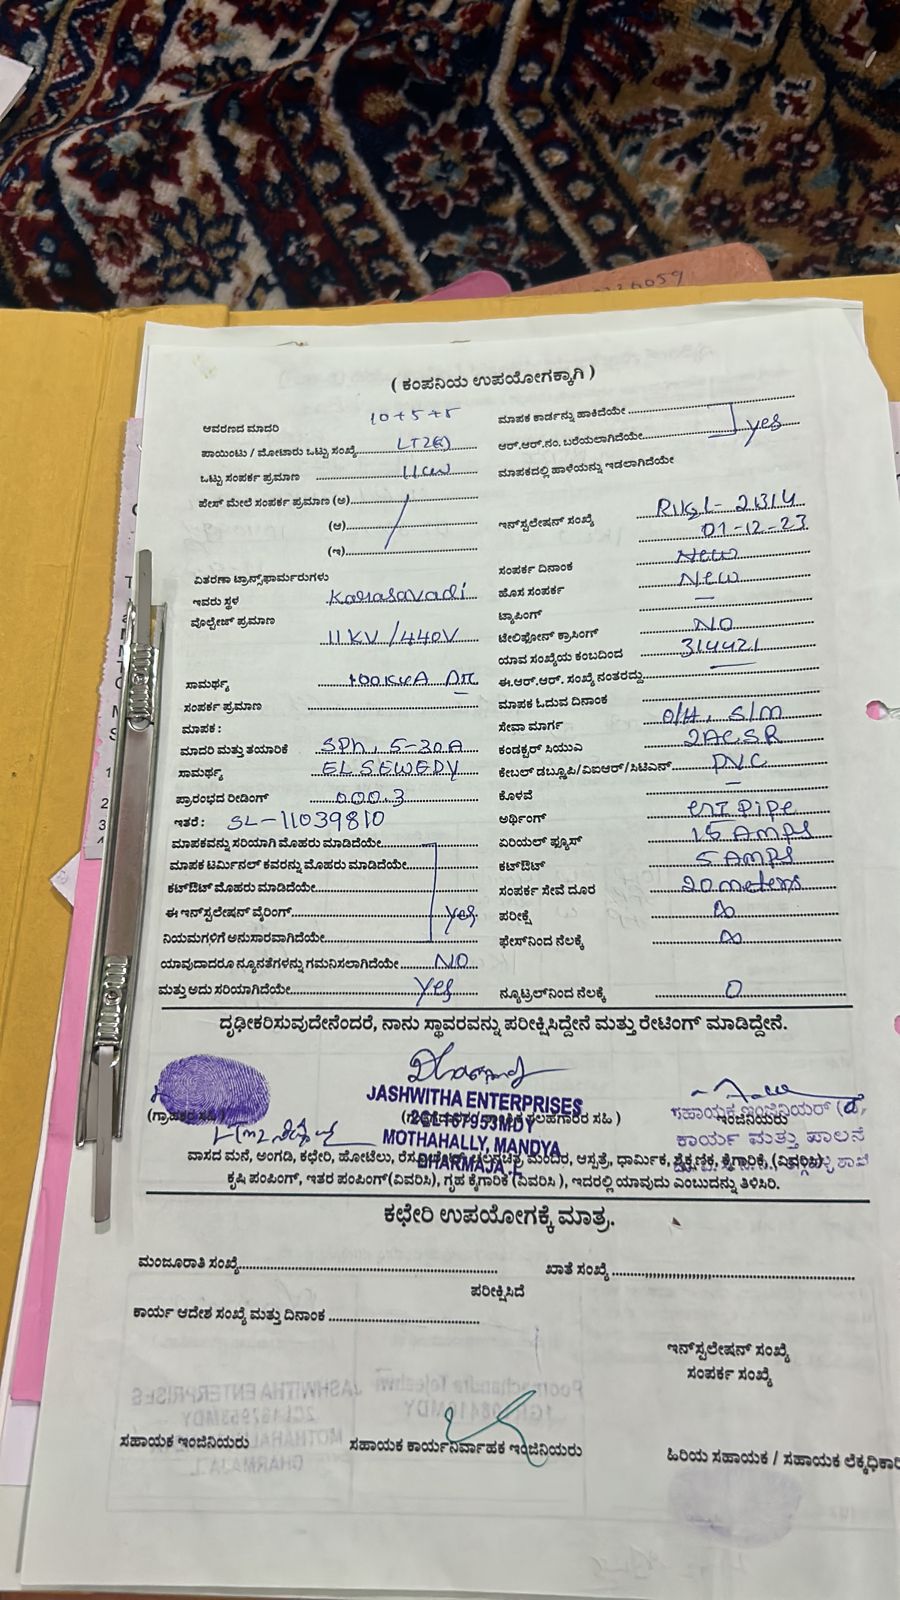 0226059
( ಕಂಪನಿಯ ಉಪಯೋಗಕ್ಕಾಗಿ )
ಆವರಣದ ಮಾದರಿ 10+5+5
ಪಾಯಿಂಟು / ಮೋಟಾರು ಒಟ್ಟು ಸಂಖ್ಯೆ
ಒಟ್ಟು ಸಂಪರ್ಕ ಪ್ರಮಾಣ
ಪೇಸ್ ಮೇಲೆ ಸಂಪರ್ಕ ಪ್ರಮಾಣ (ಅ)
(ಆ)
(ಇ)
ವಿತರಣಾ ಟ್ರಾನ್ಸ್‌ಫಾರ್ಮರುಗಳು
ಇವರು ಸ್ಥಳ Karasavadi
ವೊಲ್ಟೇಜ್ ಪ್ರಮಾಣ
11KV/440V
ಸಾಮರ್ಥ್ಯ 100KVA
ಸಂಪರ್ಕ ಪ್ರಮಾಣ
ಮಾಪಕ :
ಮಾದರಿ ಮತ್ತು ತಯಾರಿಕೆ SPh, 5-30A
ಸಾಮರ್ಥ್ಯ EL SEWEDY
ಪ್ರಾರಂಭದ ರೀಡಿಂಗ್ 000.3
ಇತರೆ : SL-11039810
ಮಾಪಕವನ್ನು ಸರಿಯಾಗಿ ಮೊಹರು ಮಾಡಿದೆಯೇ
ಮಾಪಕ ಟರ್ಮಿನಲ್ ಕವರನ್ನು ಮೊಹರು ಮಾಡಿದೆಯೇ
ಕಟ್‌ಔಟ್ ಮೊಹರು ಮಾಡಿದೆಯೇ
ಈ ಇನ್‌ಸ್ಟಲೇಷನ್ ವೈರಿಂಗ್ yes
ನಿಯಮಗಳಿಗೆ ಅನುಸಾರವಾಗಿದೆಯೇ
ಯಾವುದಾದರೂ ನ್ಯೂನತೆಗಳನ್ನು ಗಮನಿಸಲಾಗಿದೆಯೇ NO
ಮತ್ತು ಅದು ಸರಿಯಾಗಿದೆಯೇ yes
ಮಾಪಕ ಕಾರ್ಡನ್ನು ಹಾಕಿದೆಯೇ
ಆರ್.ಆರ್.ನಂ. ಬರೆಯಲಾಗಿದೆಯೇ yes
ಮಾಪಕದಲ್ಲಿ ಹಾಳೆಯನ್ನು ಇಡಲಾಗಿದೆಯೇ
ಇನ್‌ಸ್ಟಲೇಷನ್ ಸಂಖ್ಯೆ
01-12-23
ಸಂಪರ್ಕ ದಿನಾಂಕ New
ಹೊಸ ಸಂಪರ್ಕ New
ಟ್ಯಾಪಿಂಗ್ —
ಟೆಲಿಫೋನ್ ಕ್ರಾಸಿಂಗ್ NO
ಯಾವ ಸಂಖ್ಯೆಯ ಕಂಬದಿಂದ 314421
ಈ.ಆರ್.ಆರ್. ಸಂಖ್ಯೆ ನಂತರದ್ದು —
ಮಾಪಕ ಓದುವ ದಿನಾಂಕ
ಸೇವಾ ಮಾರ್ಗ O/H, S/M
ಕಂಡಕ್ಟರ್ ಸಿಯುಎ 2ACSR
ಕೇಬಲ್ ಡಬ್ಲೂಪಿ/ವಿಐಆರ್/ಸಿಟಿಎಸ್ PVC
ಕೊಳವೆ —
ಅರ್ಥಿಂಗ್ GI Pipe
ಏರಿಯಲ್ ಫ್ಯೂಸ್ 15 AMPS
ಕಟ್‌ಔಟ್ 5 AMPS
ಸಂಪರ್ಕ ಸೇವೆ ದೂರ 20 meters
ಪರೀಕ್ಷೆ ∞
ಫೇಸ್‌ನಿಂದ ನೆಲಕ್ಕೆ ∞
ನ್ಯೂಟ್ರಲ್‌ನಿಂದ ನೆಲಕ್ಕೆ 0
ದೃಢೀಕರಿಸುವುದೇನೆಂದರೆ, ನಾನು ಸ್ಥಾವರವನ್ನು ಪರೀಕ್ಷಿಸಿದ್ದೇನೆ ಮತ್ತು ರೇಟಿಂಗ್ ಮಾಡಿದ್ದೇನೆ.
JASHWITHA ENTERPRISES
2CL167953MDY
MOTHAHALLY, MANDYA
DHARMAJA.L
(ಗ್ರಾಹಕರ ಸಹಿ )
ಸಹಾಯಕ ಇಂಜಿನಿಯರ್
ಕಾರ್ಯ ಮತ್ತು ಪಾಲನೆ
ವಾಸದ ಮನೆ, ಅಂಗಡಿ, ಕಛೇರಿ, ಹೋಟೆಲು, ಚಲನಚಿತ್ರ ಮಂದಿರ, ಆಸ್ಪತ್ರೆ, ಧಾರ್ಮಿಕ, ಶೈಕ್ಷಣಿಕ, ಕೈಗಾರಿಕೆ, (ವಿವರಿಸಿ)
ಕೃಷಿ ಪಂಪಿಂಗ್, ಇತರ ಪಂಪಿಂಗ್ (ವಿವರಿಸಿ), ಗೃಹ ಕೈಗಾರಿಕೆ (ವಿವರಿಸಿ ), ಇದರಲ್ಲಿ ಯಾವುದು ಎಂಬುದನ್ನು ತಿಳಿಸಿರಿ.
ಕಛೇರಿ ಉಪಯೋಗಕ್ಕೆ ಮಾತ್ರ.
ಮಂಜೂರಾತಿ ಸಂಖ್ಯೆ ಖಾತೆ ಸಂಖ್ಯೆ
ಪರೀಕ್ಷಿಸಿದೆ
ಕಾರ್ಯ ಆದೇಶ ಸಂಖ್ಯೆ ಮತ್ತು ದಿನಾಂಕ
ಇನ್‌ಸ್ಟಲೇಷನ್ ಸಂಖ್ಯೆ
ಸಂಪರ್ಕ ಸಂಖ್ಯೆ
ಸಹಾಯಕ ಇಂಜಿನಿಯರು ಸಹಾಯಕ ಕಾರ್ಯನಿರ್ವಾಹಕ ಇಂಜಿನಿಯರು ಹಿರಿಯ ಸಹಾಯಕ / ಸಹಾಯಕ ಲೆಕ್ಕಧಿಕಾರಿ